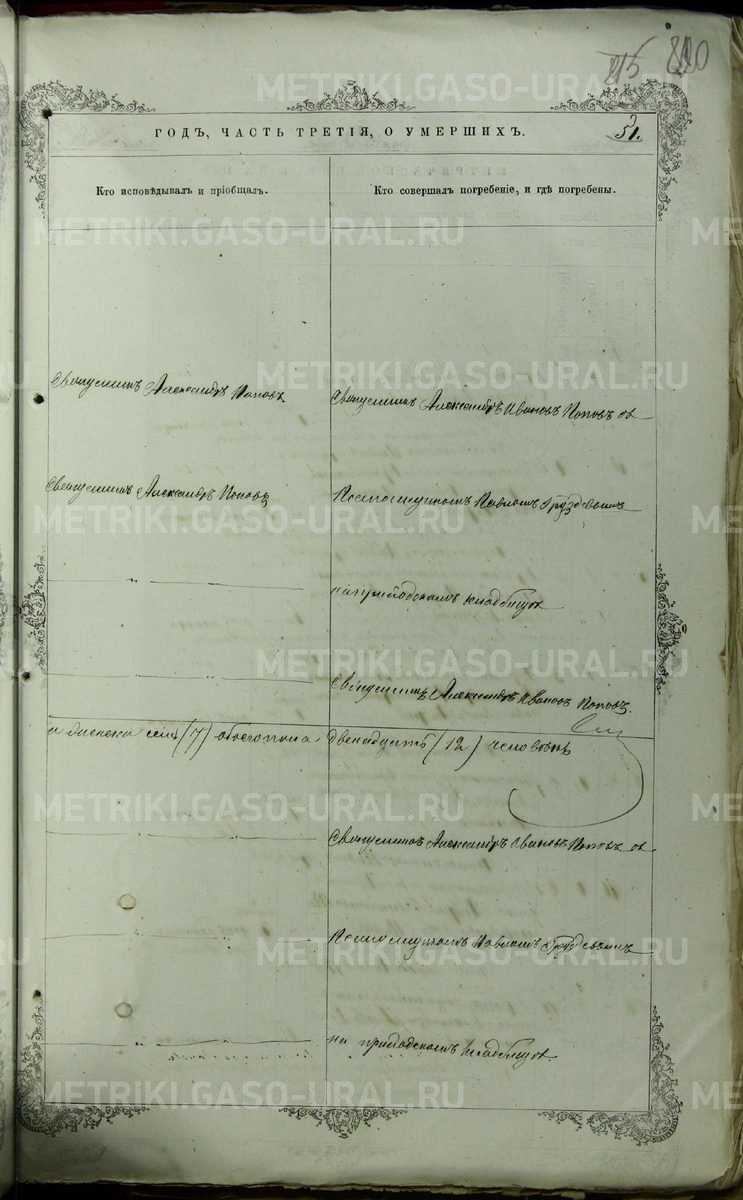 215 220
ГОДЪ, ЧАСТЬ ТРЕТІЯ, О УМЕРШИХЪ.
51.
Кто исповѣдывалъ и пріобщалъ.
Кто совершалъ погребеніе, и гдѣ погребены.
Священникъ Александръ Поповъ
Священникъ Александръ Ивановъ Поповъ съ
Священникъ Александръ Поповъ
Псаломщикомъ Павломъ Груздевымъ
на приходскомъ кладбищѣ
Священникъ Александръ Ивановъ Поповъ.
а женска семь (7) обоего пола двенадцать (12) человѣкъ
Священникъ Александръ Ивановъ Поповъ съ
Псаломщикомъ Павломъ Груздевымъ
на приходскомъ кладбищѣ.
METRIKI.GASO-URAL.RU